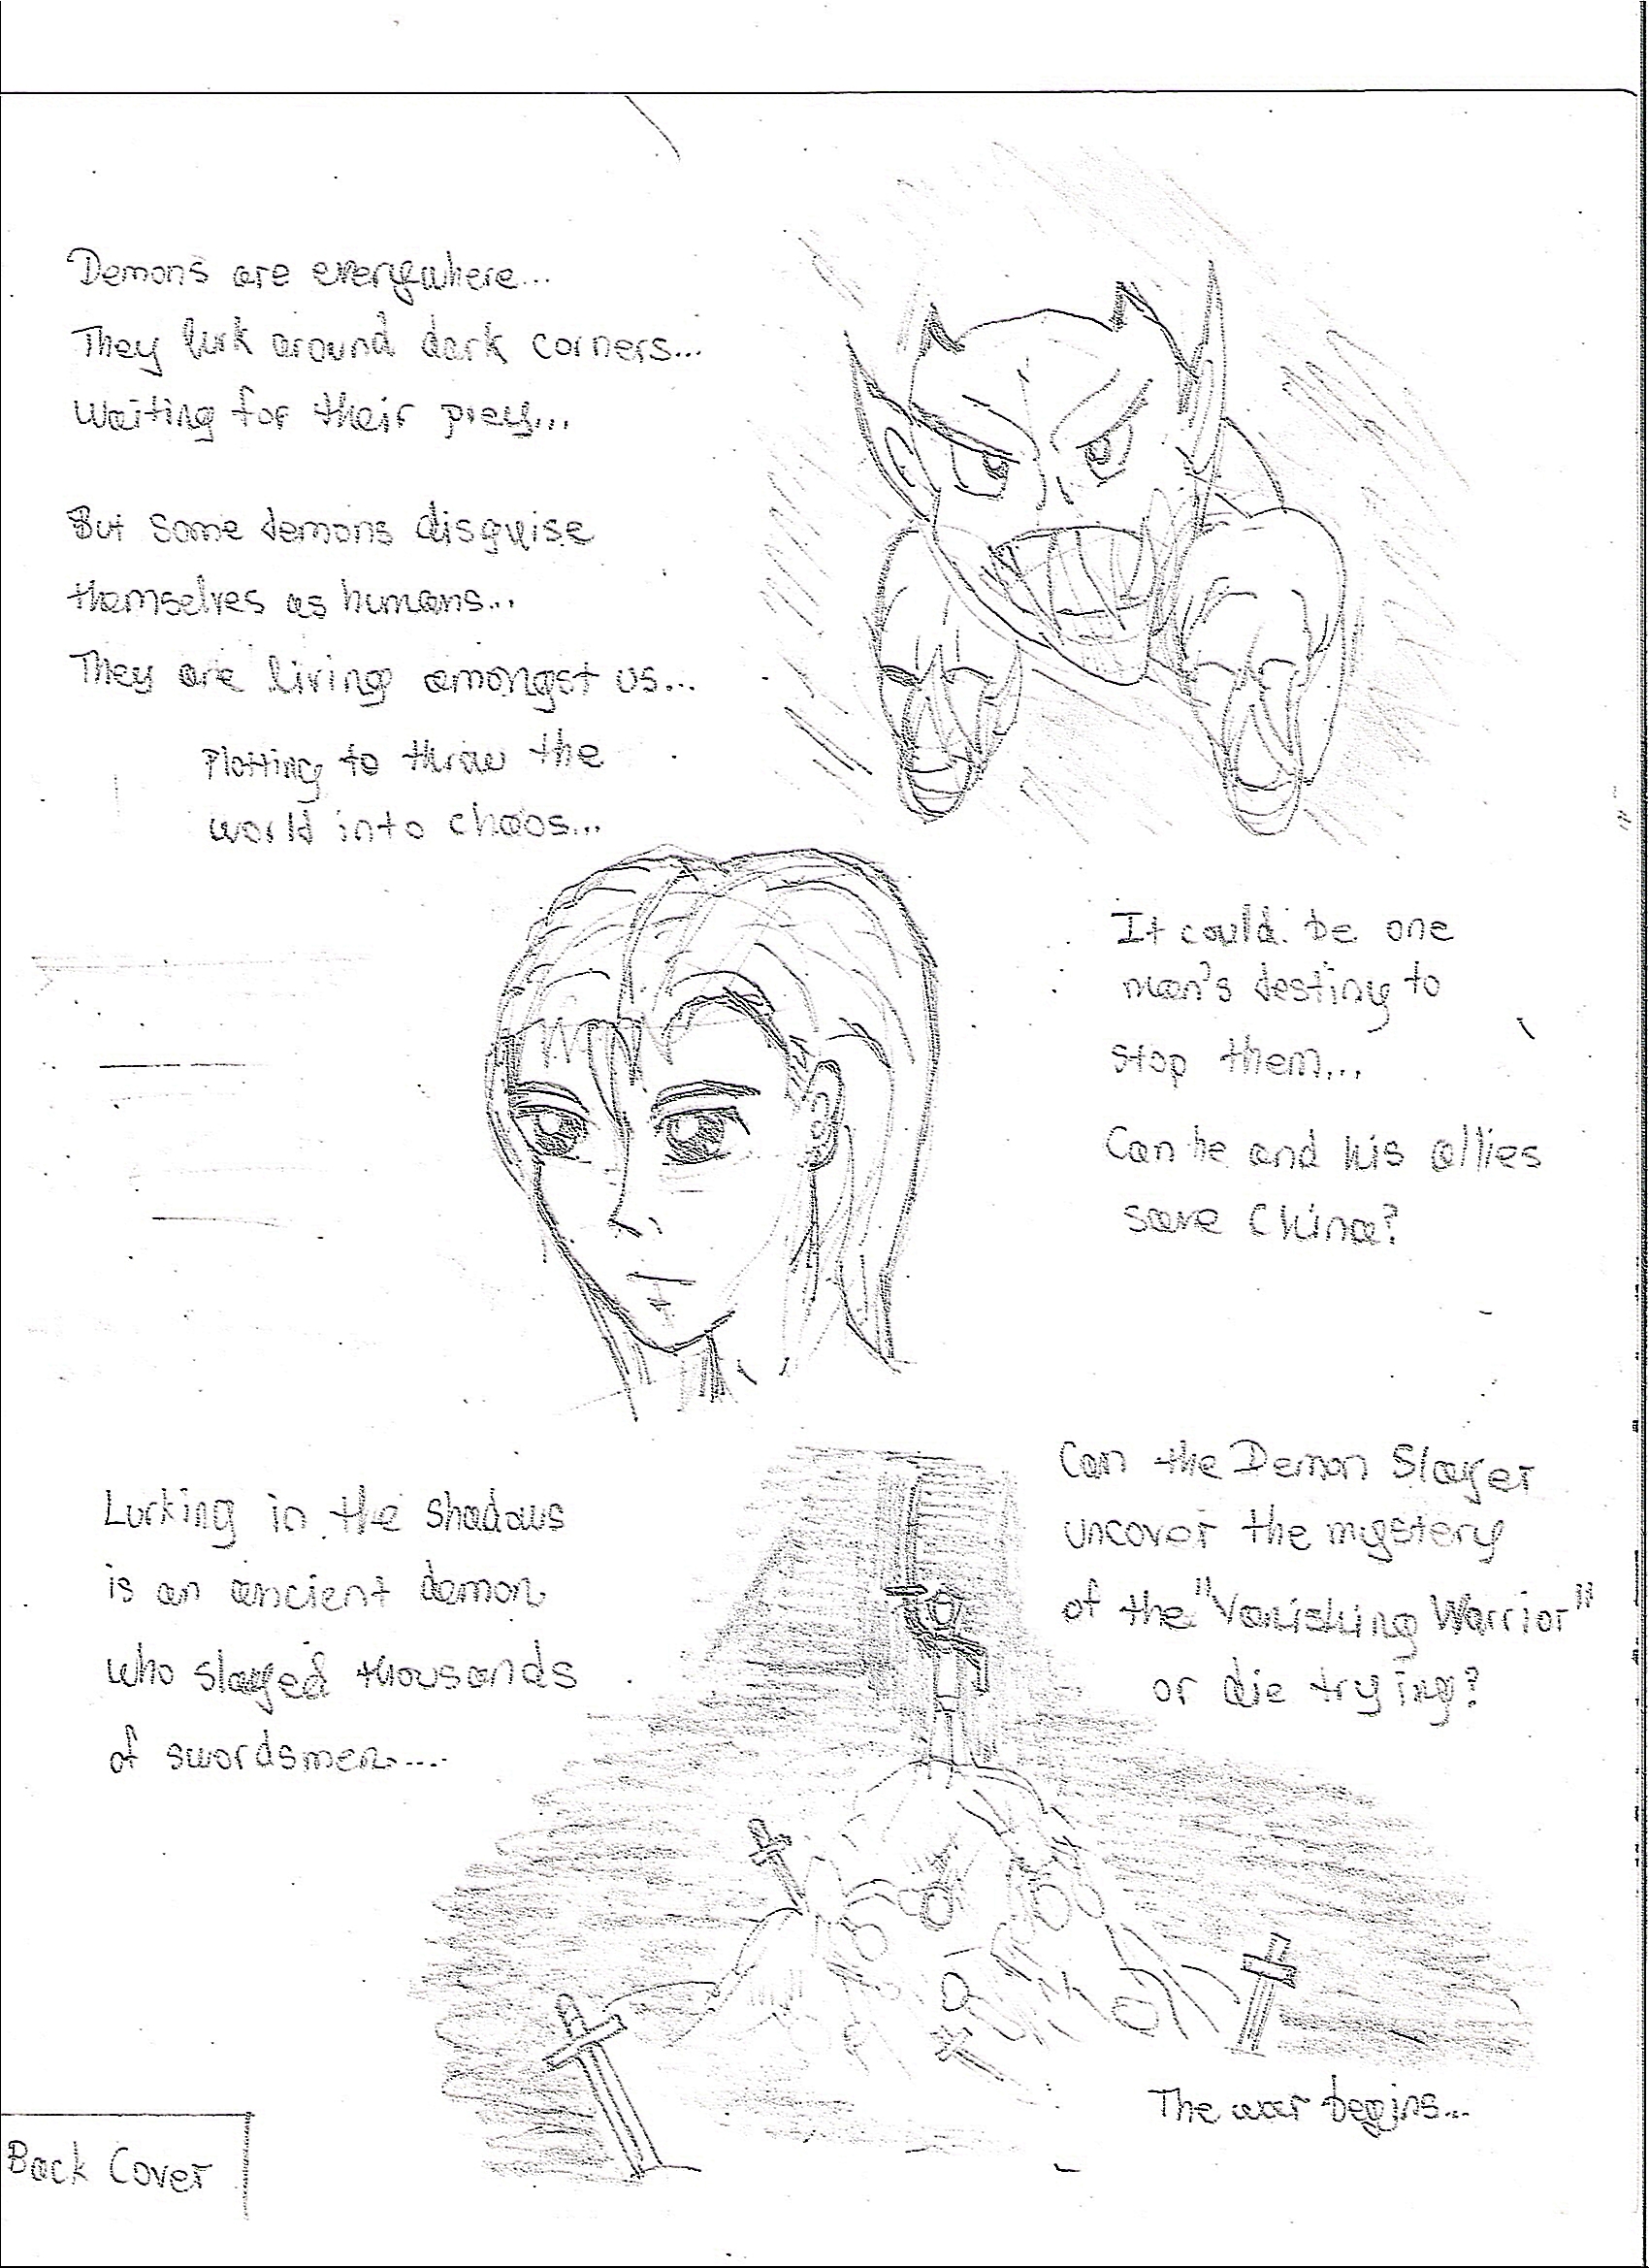 Demons are everywhere...
They lurk around dark corners...
Waiting for their prey...
But some demons disguise
themselves as humans...
They are living amongst us...
Plotting to throw the
world into chaos...
It could be one
man's destiny to
stop them...
Can he and his allies
save China?
Lurking in the shadows
is an ancient demon
who slayed thousands
of swordsmen....
Can the Demon Slayer
uncover the mystery
of the "Vanishing Warrior"
or die trying?
The war begins...
Back Cover